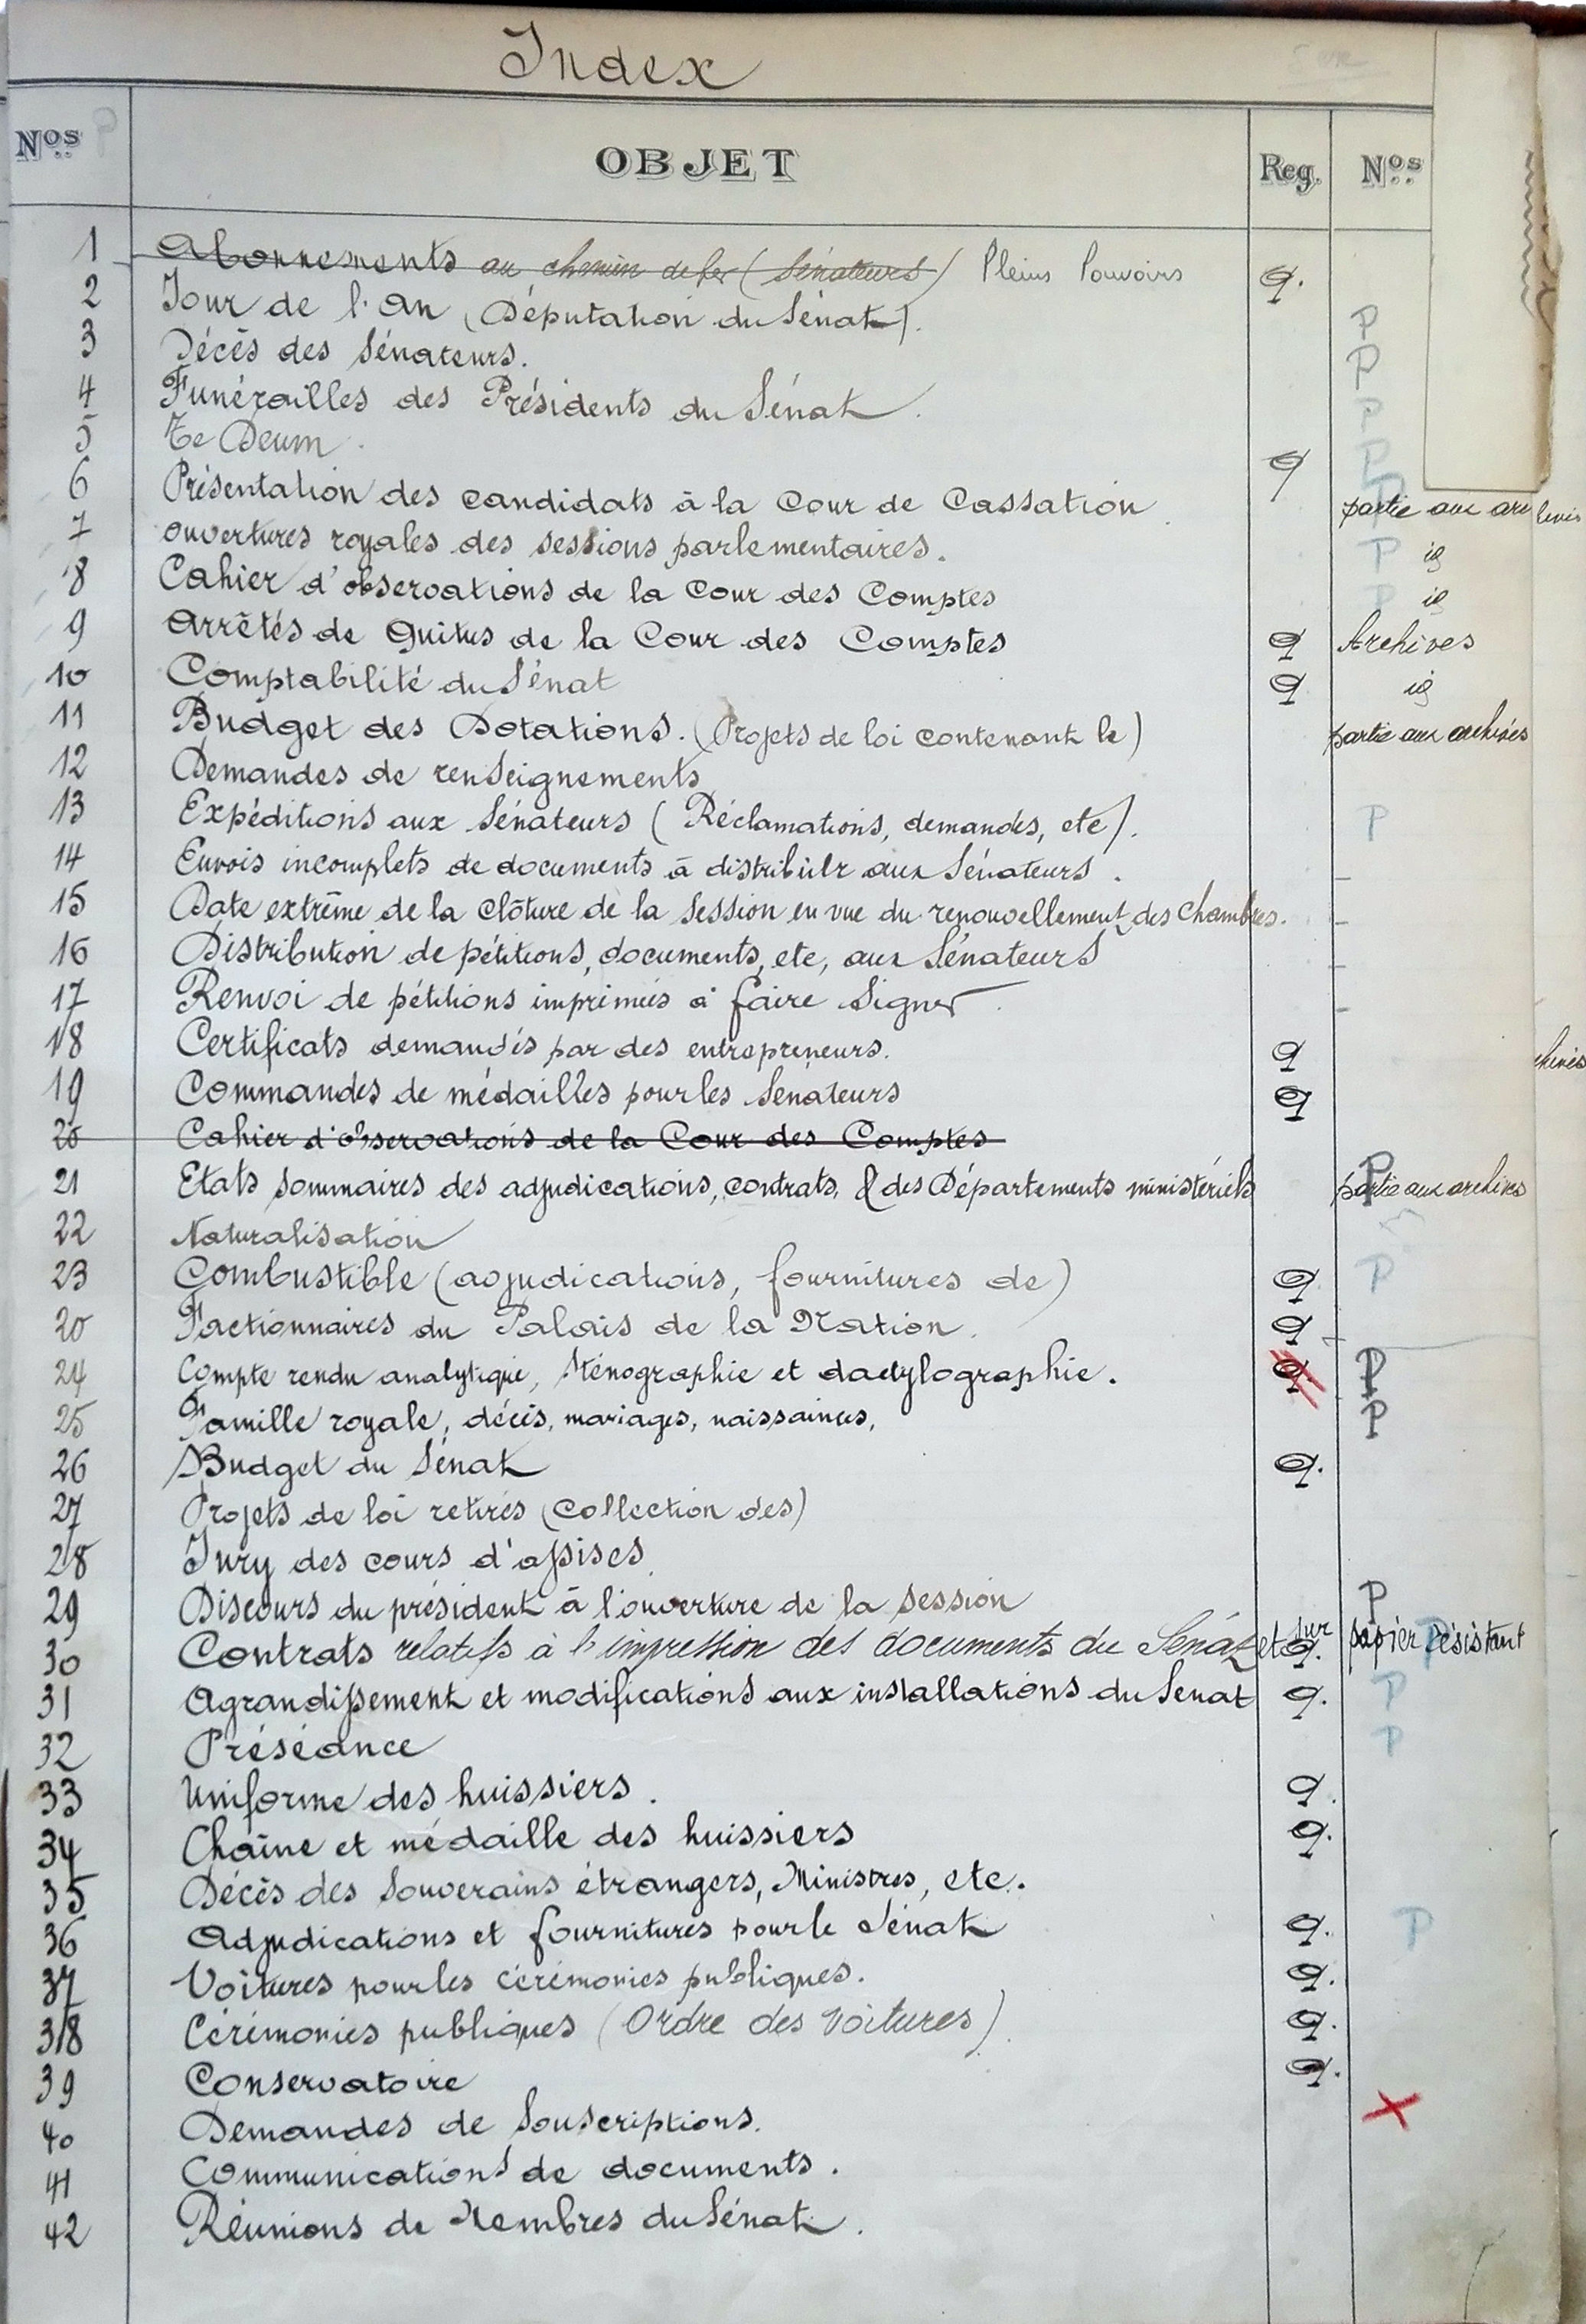 Index
Nos OBJET Reg. Nos
1 Abonnements au chemin de fer (Sénateurs) Pleins Pouvoirs q.
2 Jour de l'An (Députation du Sénat). P
3 Décès des Sénateurs. P
4 Funérailles des Présidents du Sénat. P
5 Te Deum. q P
6 Présentation des candidats à la Cour de Cassation. partie aux archives
7 Ouvertures royales des sessions parlementaires. P id
8 Cahier d'observations de la Cour des Comptes P id
9 Arrêtés de Quitus de la Cour des Comptes q Archives
10 Comptabilité du Sénat q id
11 Budget des Dotations. (Projets de loi contenant le) partie aux archives
12 Demandes de renseignements
13 Expéditions aux Sénateurs (Réclamations, demandes, etc). P
14 Envois incomplets de documents à distribuer aux Sénateurs. –
15 Date extrême de la clôture de la session en vue du renouvellement des Chambres. –
16 Distribution de pétitions, documents, etc, aux Sénateurs –
17 Renvoi de pétitions imprimées à faire signer. –
18 Certificats demandés par des entrepreneurs. q
19 Commandes de médailles pour les Sénateurs q
20 Cahier d'observations de la Cour des Comptes
21 Etats sommaires des adjudications, contrats, & des Départements ministériels P partie aux archives
22 Naturalisation
23 Combustible (adjudications, fournitures de) q P
20 Factionnaires du Palais de la Nation. q
24 Compte rendu analytique, Sténographie et dactylographie. q P
25 Famille royale, décès, mariages, naissances, P
26 Budget du Sénat q.
27 Projets de loi retirés (collection des)
28 Jury des cours d'assises
29 Discours du président à l'ouverture de la session P
30 Contrats relatifs à l'impression des documents du Sénat et sur q. papier résistant
31 Agrandissement et modifications aux installations du Sénat q. P
32 Préséance P
33 Uniforme des huissiers. q.
34 Chaîne et médaille des huissiers q.
35 Décès des Souverains étrangers, Ministres, etc.
36 Adjudications et fournitures pour le Sénat q. P
37 Voitures pour les cérémonies publiques. q.
38 Cérémonies publiques (Ordre des voitures). q.
39 Conservatoire q.
40 Demandes de Souscriptions.
41 Communications de documents.
42 Réunions de Membres du Sénat.